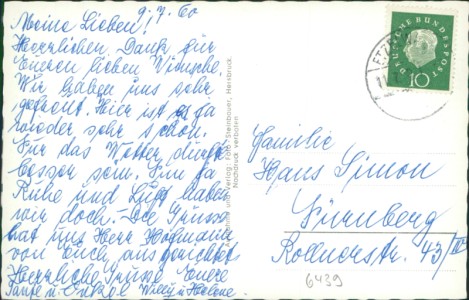 9.7.60
Meine Lieben!
Herzlichen Dank für
Eueren lieben Wünsche.
Wir haben uns sehr
gefreut. Hier ist es ja
wieder sehr schön.
Nur das Wetter dürfte
besser sein. Nun ja
Ruhe und Luft haben
wir doch. Die Grüsse
hat uns Herr Hofmann
von Euch ausgerichtet
Herzliche Grüsse Euere
Tante u. Onkel Willy u. Helene
Verlag Foto-Steinbauer, Hersbruck.
Nachdruck verboten
DEUTSCHE BUNDESPOST
10
Familie
Hans Simon
Nürnberg
Rollnerstr. 43/III
6439